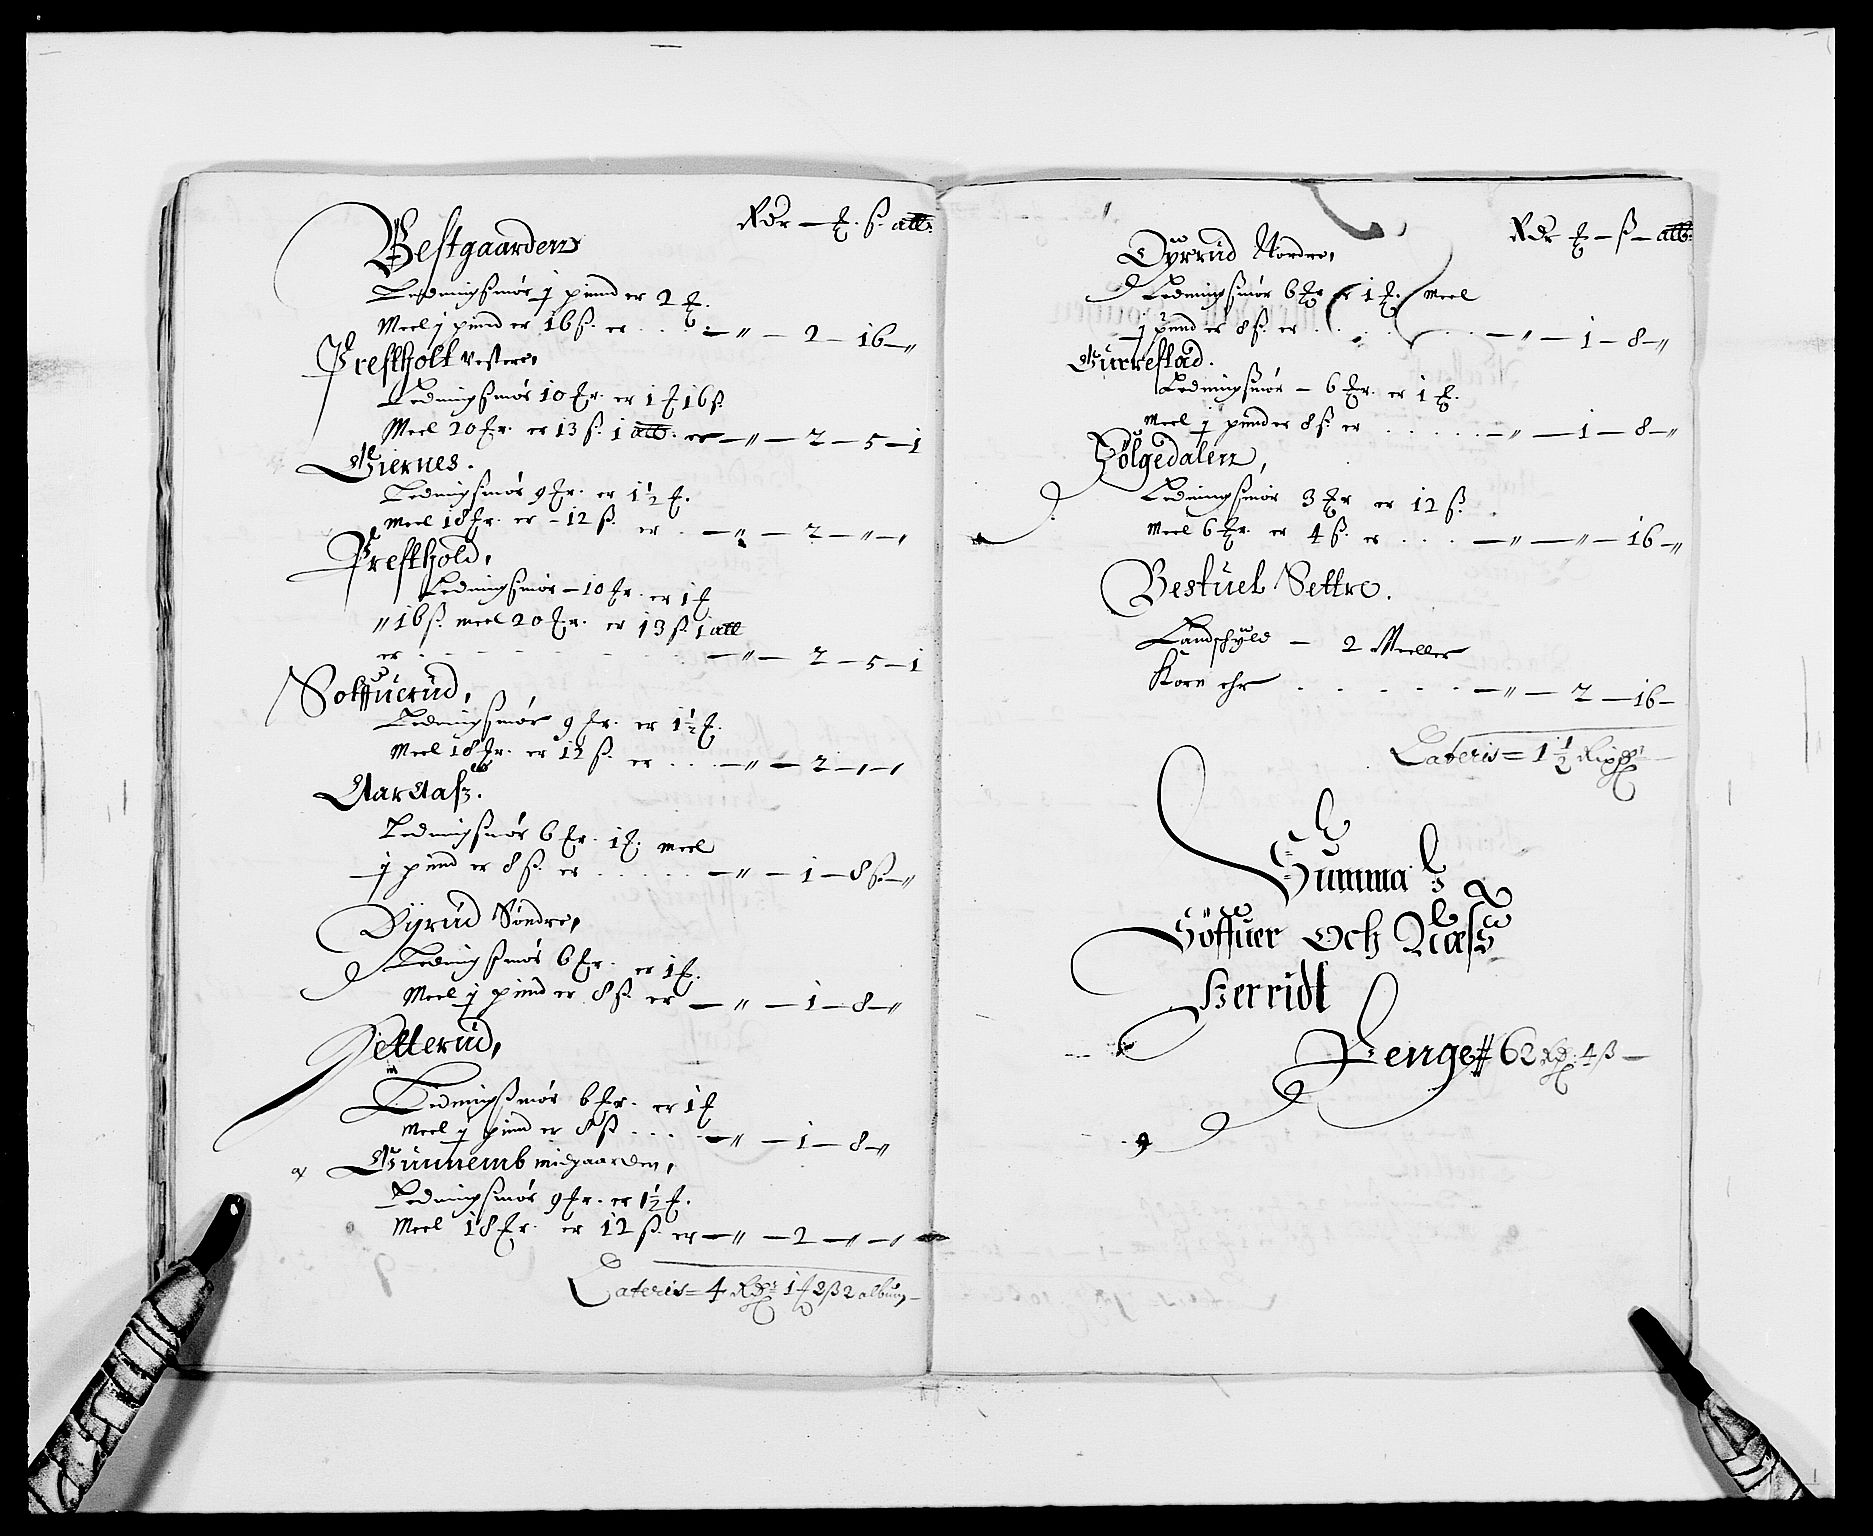 Rdr — £. ß. alb.
Vestgaarden
Ledingsmør j pund er 2 £.
Meel j pund er 16 ß. er . . . — " — 2 — 16 — "
Prestholt vestere,
Ledingsmør 10 £r. er 1 £ 16 ß.
Meel 20 £r. er 13 ß. 1 alb. er — " — 2 — 5 — 1
Giernes.
Ledingsmør 9 £r. er 1½ £.
Meel 18 £r. er — 12 ß. er . — " — 2 — " — "
Presthold,
Ledingsmør — 10 £r. er 1 £
" 16 ß. meel 20 £r. er 13 ß. 1 alb
er . . . — " — 2 — 5 — 1
Solffuerud,
Ledingsmør 9 £r. er 1½ £.
Meel 18 £r. er 12 ß. er . . . — " — 2 — " — "
Aaraasz.
Ledingsmør 6 £r. 1 £. meel
j pund er 8 ß. er . . . . . — " — 1 — 8 ß. — "
Dyrud Søndre,
Ledingsmør 6 £r. er 1 £.
Meel j pund er 8 ß. er — " — 1 — 8 — "
Petterud,
Ledingßmør 6 £r. er 1 £
Meel j pund er 8 ß . . . . — " — 1 — 8 — "
Gunnemb midgaarden,
Ledingsmør 9 £r. er 1½ £.
Meel 18 £r. er 12 ß. er — " — 2 — " — "
Lateris = 4 Rdr 1 £ 2 ß 2 album —
Rdr £ — ß — alb.
Dyrrud Nordre,
Ledingsmør 6 £r er 1 £. Meel
j pund er 8 ß. er . . . . — " — 1 — 8 — "
Gurrestad.
Ledingsmør — 6 £r. er 1 £.
Meel j pund er 8 ß. er . . . . . — " — 1 — 8 — "
Hölgedalen,
Ledningsmør 3 £r er 12 ß.
Meel 6 £r. er 4 ß. er . . . . — " — " — 16 — "
Bestuel Settre.
Landschyld — 2 Meeller
Korn ehr . . . . . — " — 2 — 16 —
Lateris = 1½ Rixdlr —
Summa
Söffuer Och Næsß
Herridt
Penge # 62 Rd: 4 ß —